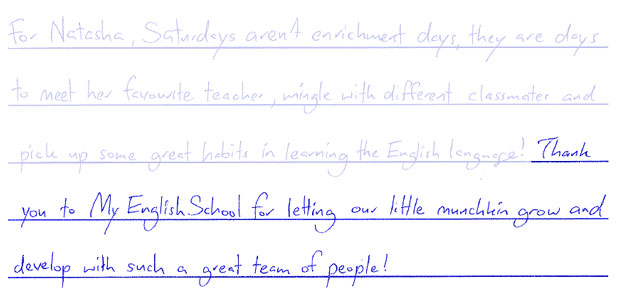 For Natasha, Saturdays aren't enrichment days, they are days
to meet her favourite teacher, mingle with different classmates and
pick up some great habits in learning the English language! Thank
you to My English School for letting our little munchkin grow and
develop with such a great team of people!